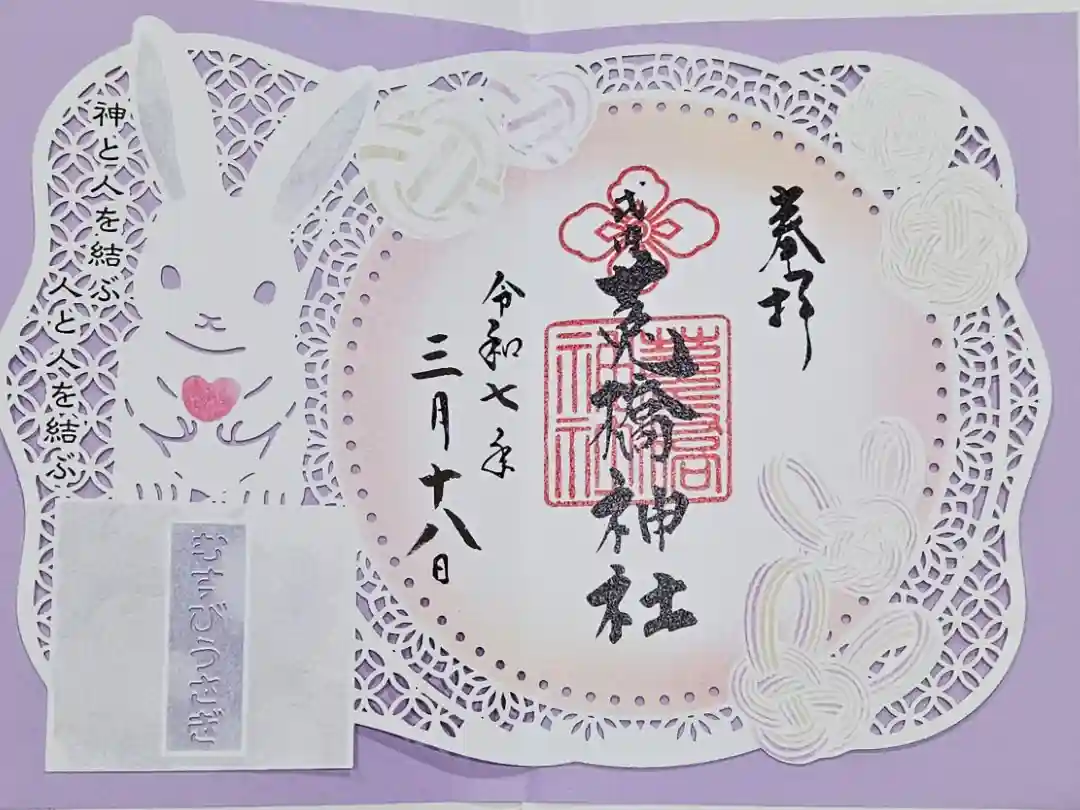 奉拝
式内
菟橋神社
令和七年
三月十八日
神と人を結ぶ
人と人を結ぶ
むすびうさぎ